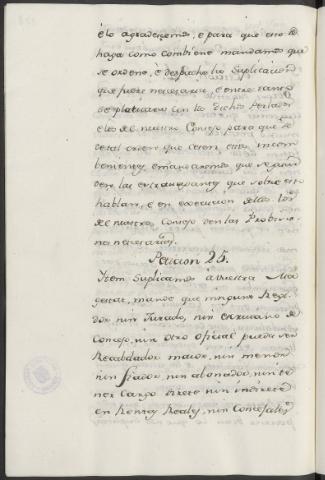 elo agradecemos, e para que ansi se
haga como combiene mandamos que
se ordene, e despache la suplicacion
que fuere necesaria, e entre tanto
se platicara con los dichos Perlados
e los de nuestro Consejo para que se
de tal orden que cesen estos incom
benientes, e mandaremos que se guar
den las extravagantes que sobre esto
hablan, e en execucion dellas los
de nuestro Consejo den las Probisio
nes necesarias.
Peticion 25.
Item Suplicamos a vuestra Ma
gestad, mande que ninguno Regi
dor, nin Jurado, nin escrivano de
Concejo, nin otro oficial pueda ser
Recabdador maior, nin menor
nin fiador, nin abonador, nin te
ner cargo direte nin indirete
en Rentas Reales, nin Concejales